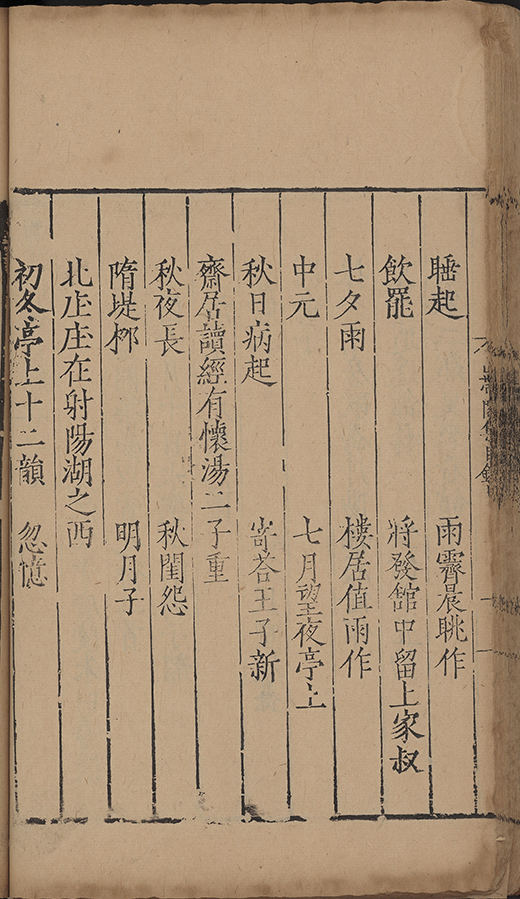 睡起 雨霽晨眺作
飲罷 將發館中留上家叔
七夕雨 樓居值雨作
中元 七月望夜亭上
秋日病起 寄荅王子新
齋居讀經有懷湯二子重
秋夜長 秋閨怨
隋堤桺 明月子
北庄庄在射陽湖之西
初冬亭上十二韻 忽憶